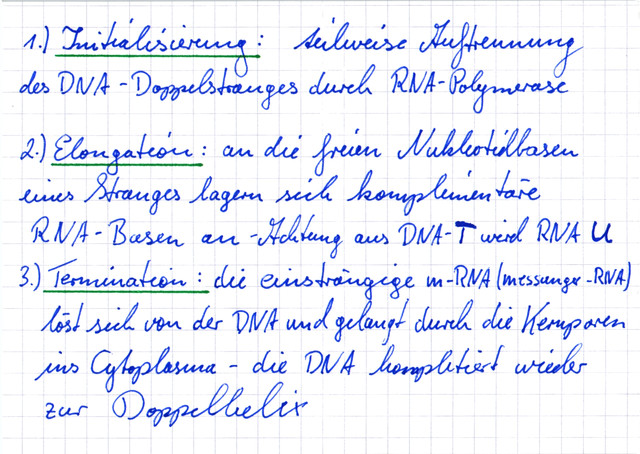 1.) Initialisierung: teilweise Auftrennung
des DNA-Doppelstranges durch RNA-Polymerase
2.) Elongation: an die freien Nukleotidbasen
eines Stranges lagern sich komplementäre
RNA-Basen an - Achtung aus DNA-T wird RNA U
3.) Termination: die einsträngige m-RNA (messunger-RNA)
löst sich von der DNA und gelangt durch die Kernporen
ins Cytoplasma - die DNA komplettiert wieder
zur Doppelhelix